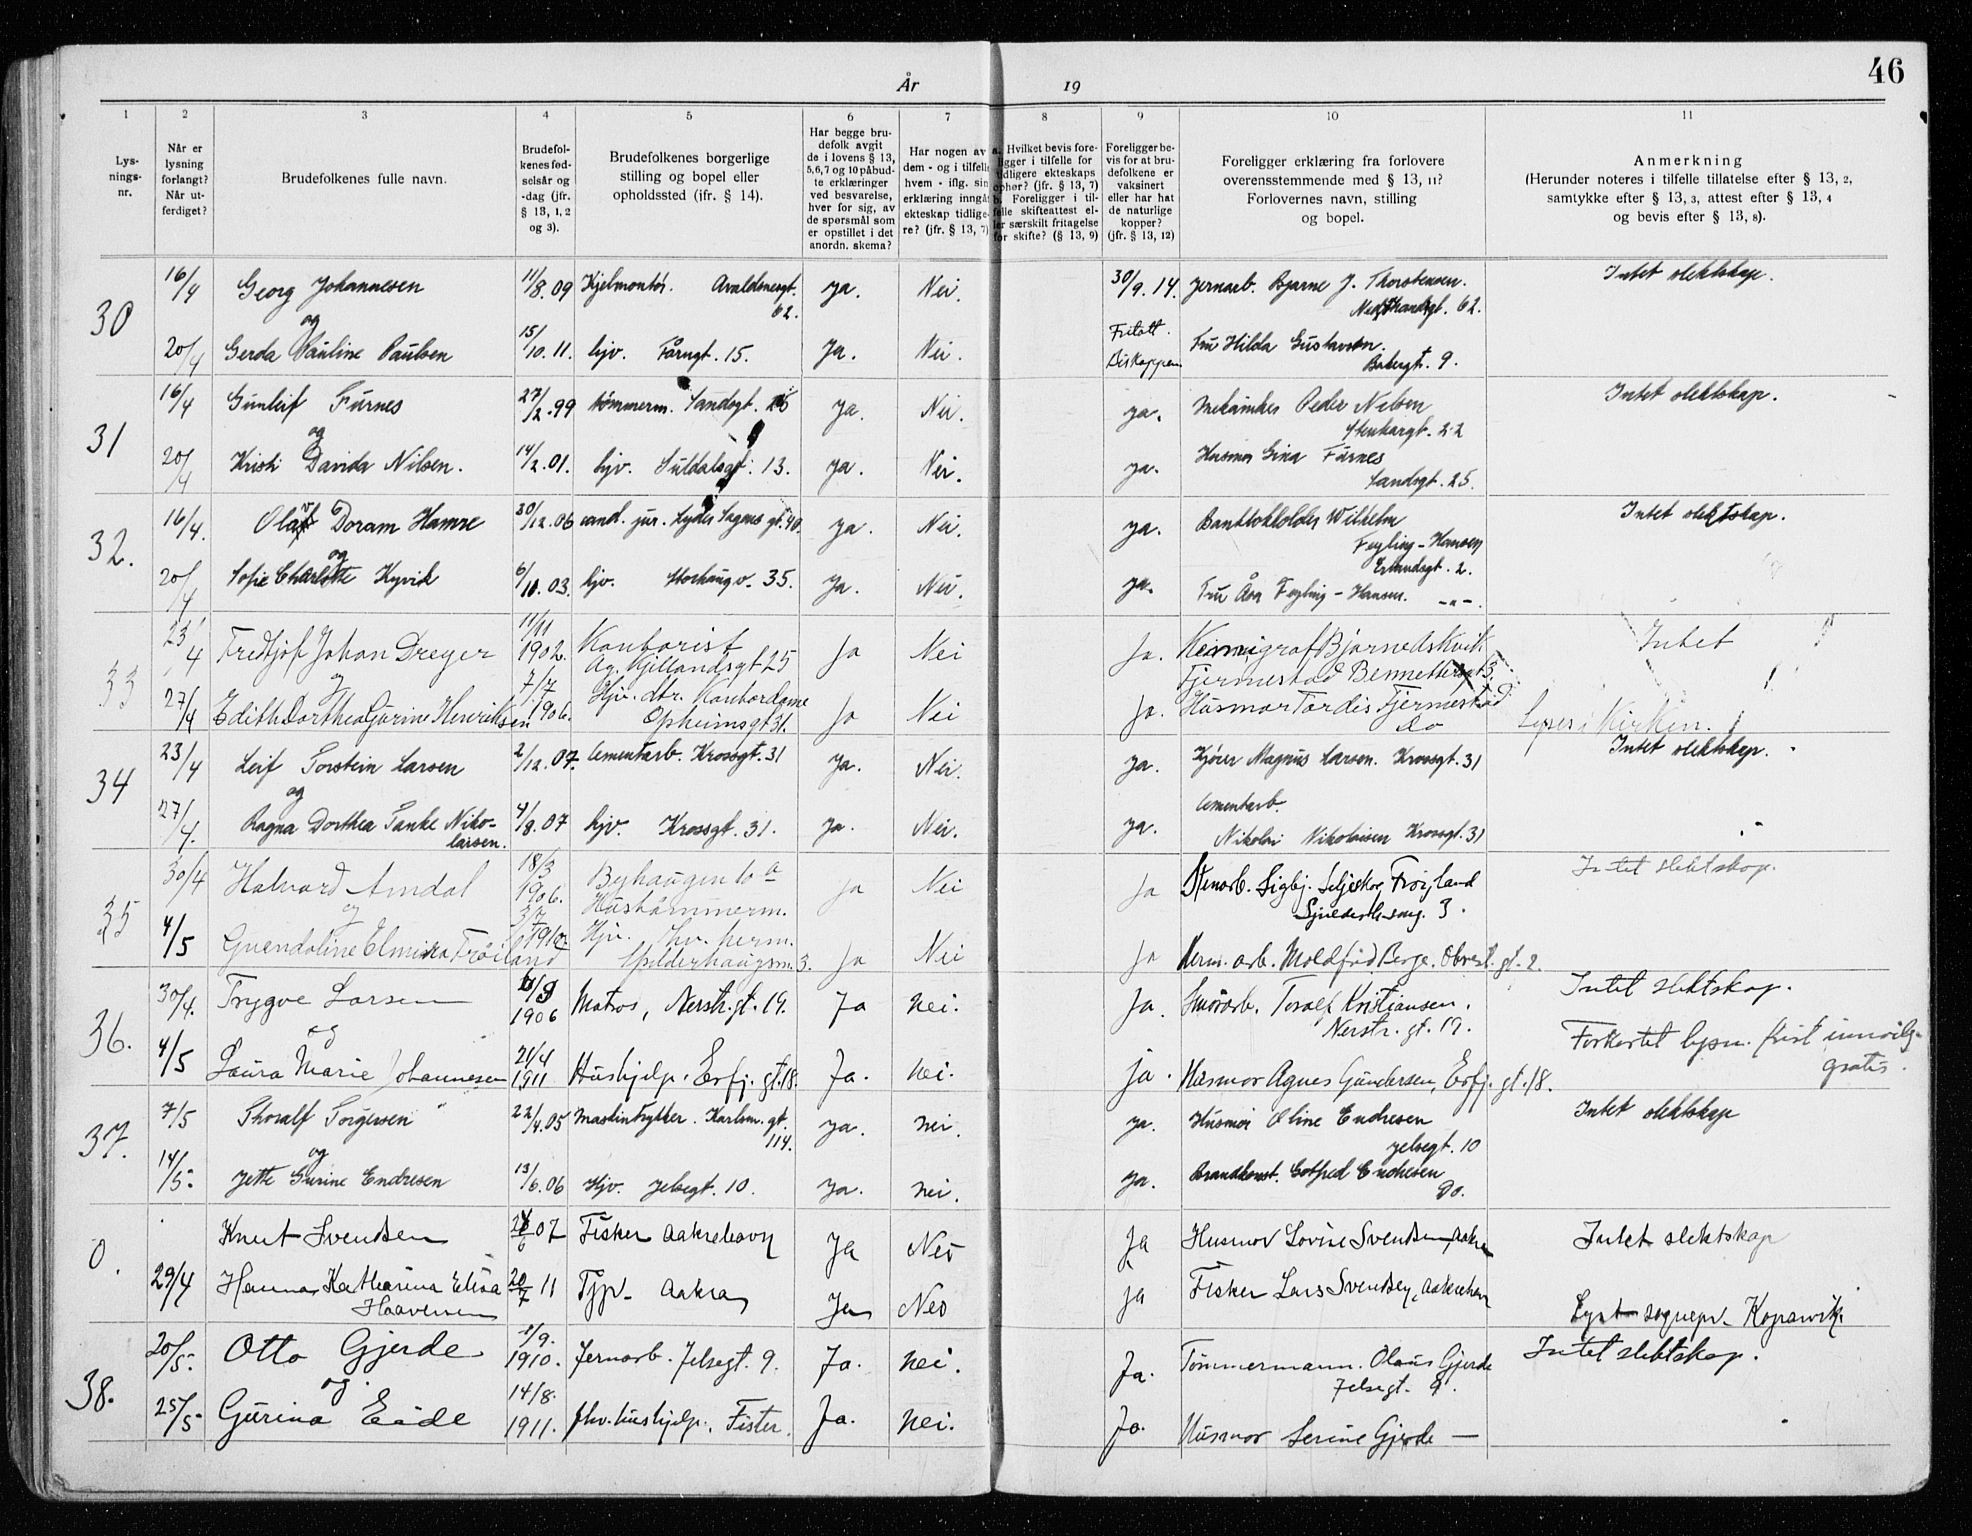 46
År 19
1 2 3 4 5 6 7 8 9 10 11
Lys-
nings-
nr.
Når er
lysning
forlangt?
Når ut-
ferdiget?
Brudefolkenes fulle navn.
Brudefol-
kenes fød-
selsår og
-dag (jfr.
§ 13, 1, 2
og 3).
Brudefolkenes borgerlige
stilling og bopel eller
opholdssted (jfr. § 14).
Har begge bru-
defolk avgit
de i lovens § 13,
5,6,7 og 10 påbud-
te erklæringer
ved besvarelse,
hver for sig, av
de spørsmål som
er opstillet i det
anordn. skema?
Har nogen av
dem - og i tilfelle
hvem - iflg. sin
erklæring inngåt
ekteskap tidlige-
re? (jfr. § 13, 7)
a. Hvilket bevis fore-
ligger i tilfelle for
tidligere ekteskaps
ophør? (jfr. § 13, 7)
b. Foreligger i til-
felle skifteattest el-
ler særskilt fritagelse
for skifte? (§ 13, 9)
Foreligger be-
vis for at bru-
defolkene er
vaksinert
eller har hat
de naturlige
kopper?
(jfr. § 13, 12)
Foreligger erklæring fra forlovere
overensstemmende med § 13, 11?
Forlovernes navn, stilling
og bopel.
Anmerkning
(Herunder noteres i tilfelle tillatelse efter § 13, 2,
samtykke efter § 13, 3, attest efter § 13, 4
og bevis efter § 13, 8).
30 16/4 Georg Johannesen 11/8.09 Kjelmontør. Avaldsnesgt. 62. ja. Nei. 30/9.14. Jernarb. Bjarne J. Thorstensen. Nedstrandsgt. 62. Intet slektskap.
og
20/4 Gerda Pauline Paulsen 15/10.11. hjv. Tårngt. 15. Ja. Nei. Fritatt. Fru Hilda Gustavsen. Bakergt. 9.
31 16/4 Gunleif Furnes 27/2.99 tømmerm. Sandsgt. 25 ja. Nei. ja. Mekaniker Peder Nilsen Stenkargt. 22 Intet slektskap.
og
20/4 Kristi Davida Nilsen. 14/2.01. hjv. Suldalsgt. 13. ja. Nei. ja. Husmor Gina Furnes Sandsgt. 25.
32. 16/4. Olav Doram Hamre 30/12.06 cand. jur. Lyder Sagens gt. 40. ja. Nei. ja. Bankbokholder Wilhelm Feyling-Hansen Erlandsgt. 2. Intet slektskap.
og
20/4 Sofie Charlotte Kyvik 6/10.03. hjv. Storhaugv. 35. ja. Nei. ja. Fru Åsa Feyling-Hansen. -"-.
33 23/4 Fredtjof Johan Dreyer 11/11 1902. Kontorist Ag. Kjellandsgt 25 Ja Nei Ja. Kemigraf Bjarne Fjermestad Intet
og
27/4 Edith Dorthea Gurine Henriksen 7/7 1906. Hjv. dtr. Kontordame Opheimsgt 31. Ja Nei Ja. Husmor Tordis Fjermestad do Lyses i Kirken.
34 23/4 Leif Torstein Larsen 2/12.07. Cementarb. Krossgt. 31 ja. Nei. ja. Kjører Magnus Larsen. Krossgt. 31 Intet slektskap.
og
27/4. Ragna Dorthea Tanke Niko-
laisen. 4/8.07 hjv. Krossgt. 31. ja. Nei. ja. Cementarb. Nikolai Nikolaisen Krossgt. 31
35 30/4 Halvard Amdal 18/3 1906. Byhaugen 10 a Hustømmerm. ja Nei Ja Stenarb. Sigbj. Frøyland 3. Intet slektskap.
og
4/5 Guendoline Elmina Frøiland 3/7 Hjv. 3. Ja Nei Ja Herm. arb. Moldfrid Berge. gt. 2.
36. 30/4. Trygve Larsen 1906 Matros, Nerstr. gt. 19. Ja nei. Ja. Toralf Kristiansen. Nerstr. gt. 19. Intet slektskap.
og
4/5 Laura Marie Johannesen 21/4 1911 Hushjelp. Erfj. gt. 18. Ja. nei. ja. Husmor Agnes Gundersen, Erfj. gt. 18. Forkortet lysn. frist innvilg. gratis.
37. 7/5 Thoralf Torgersen 22/4.05 Maskintrykker. Karlsm. gt. 114. ja. nei. ja. Husmor Oline Endresen Jelsegt. 10 Intet slektskap
og
14/5. Jette Gurine Endresen 13/6.06 Hjv. Jelsegt. 10. ja. nei. ja. Brandkonst. Gotfred Endresen Do.
0. Knut Svendsen 07 Fisker Aakrehavn Ja Nei Ja Husmor Lovise Svendsen, Aakra Intet slektskap
29/4 Hanna Katharina Elisa
Haaversen 20/7 11 Tjp. Aakra Ja Nei ja Fisker Lars Svendsen, Aakrehavn Lyst sognepr. Kopervik.
38. 20/5. Otto Gjerde 1/9. 1910. Jernarb. Jelsegt. 9. Ja. nei. Ja. Tømmermann. Olaus Gjerde Jelsegt. 9. Intet slektskap.
og
25/5. Gurina Eide 14/8. 1911. fhv. hushjelp. Fister. Ja. nei. Ja. Husmor Serine Gjerde —